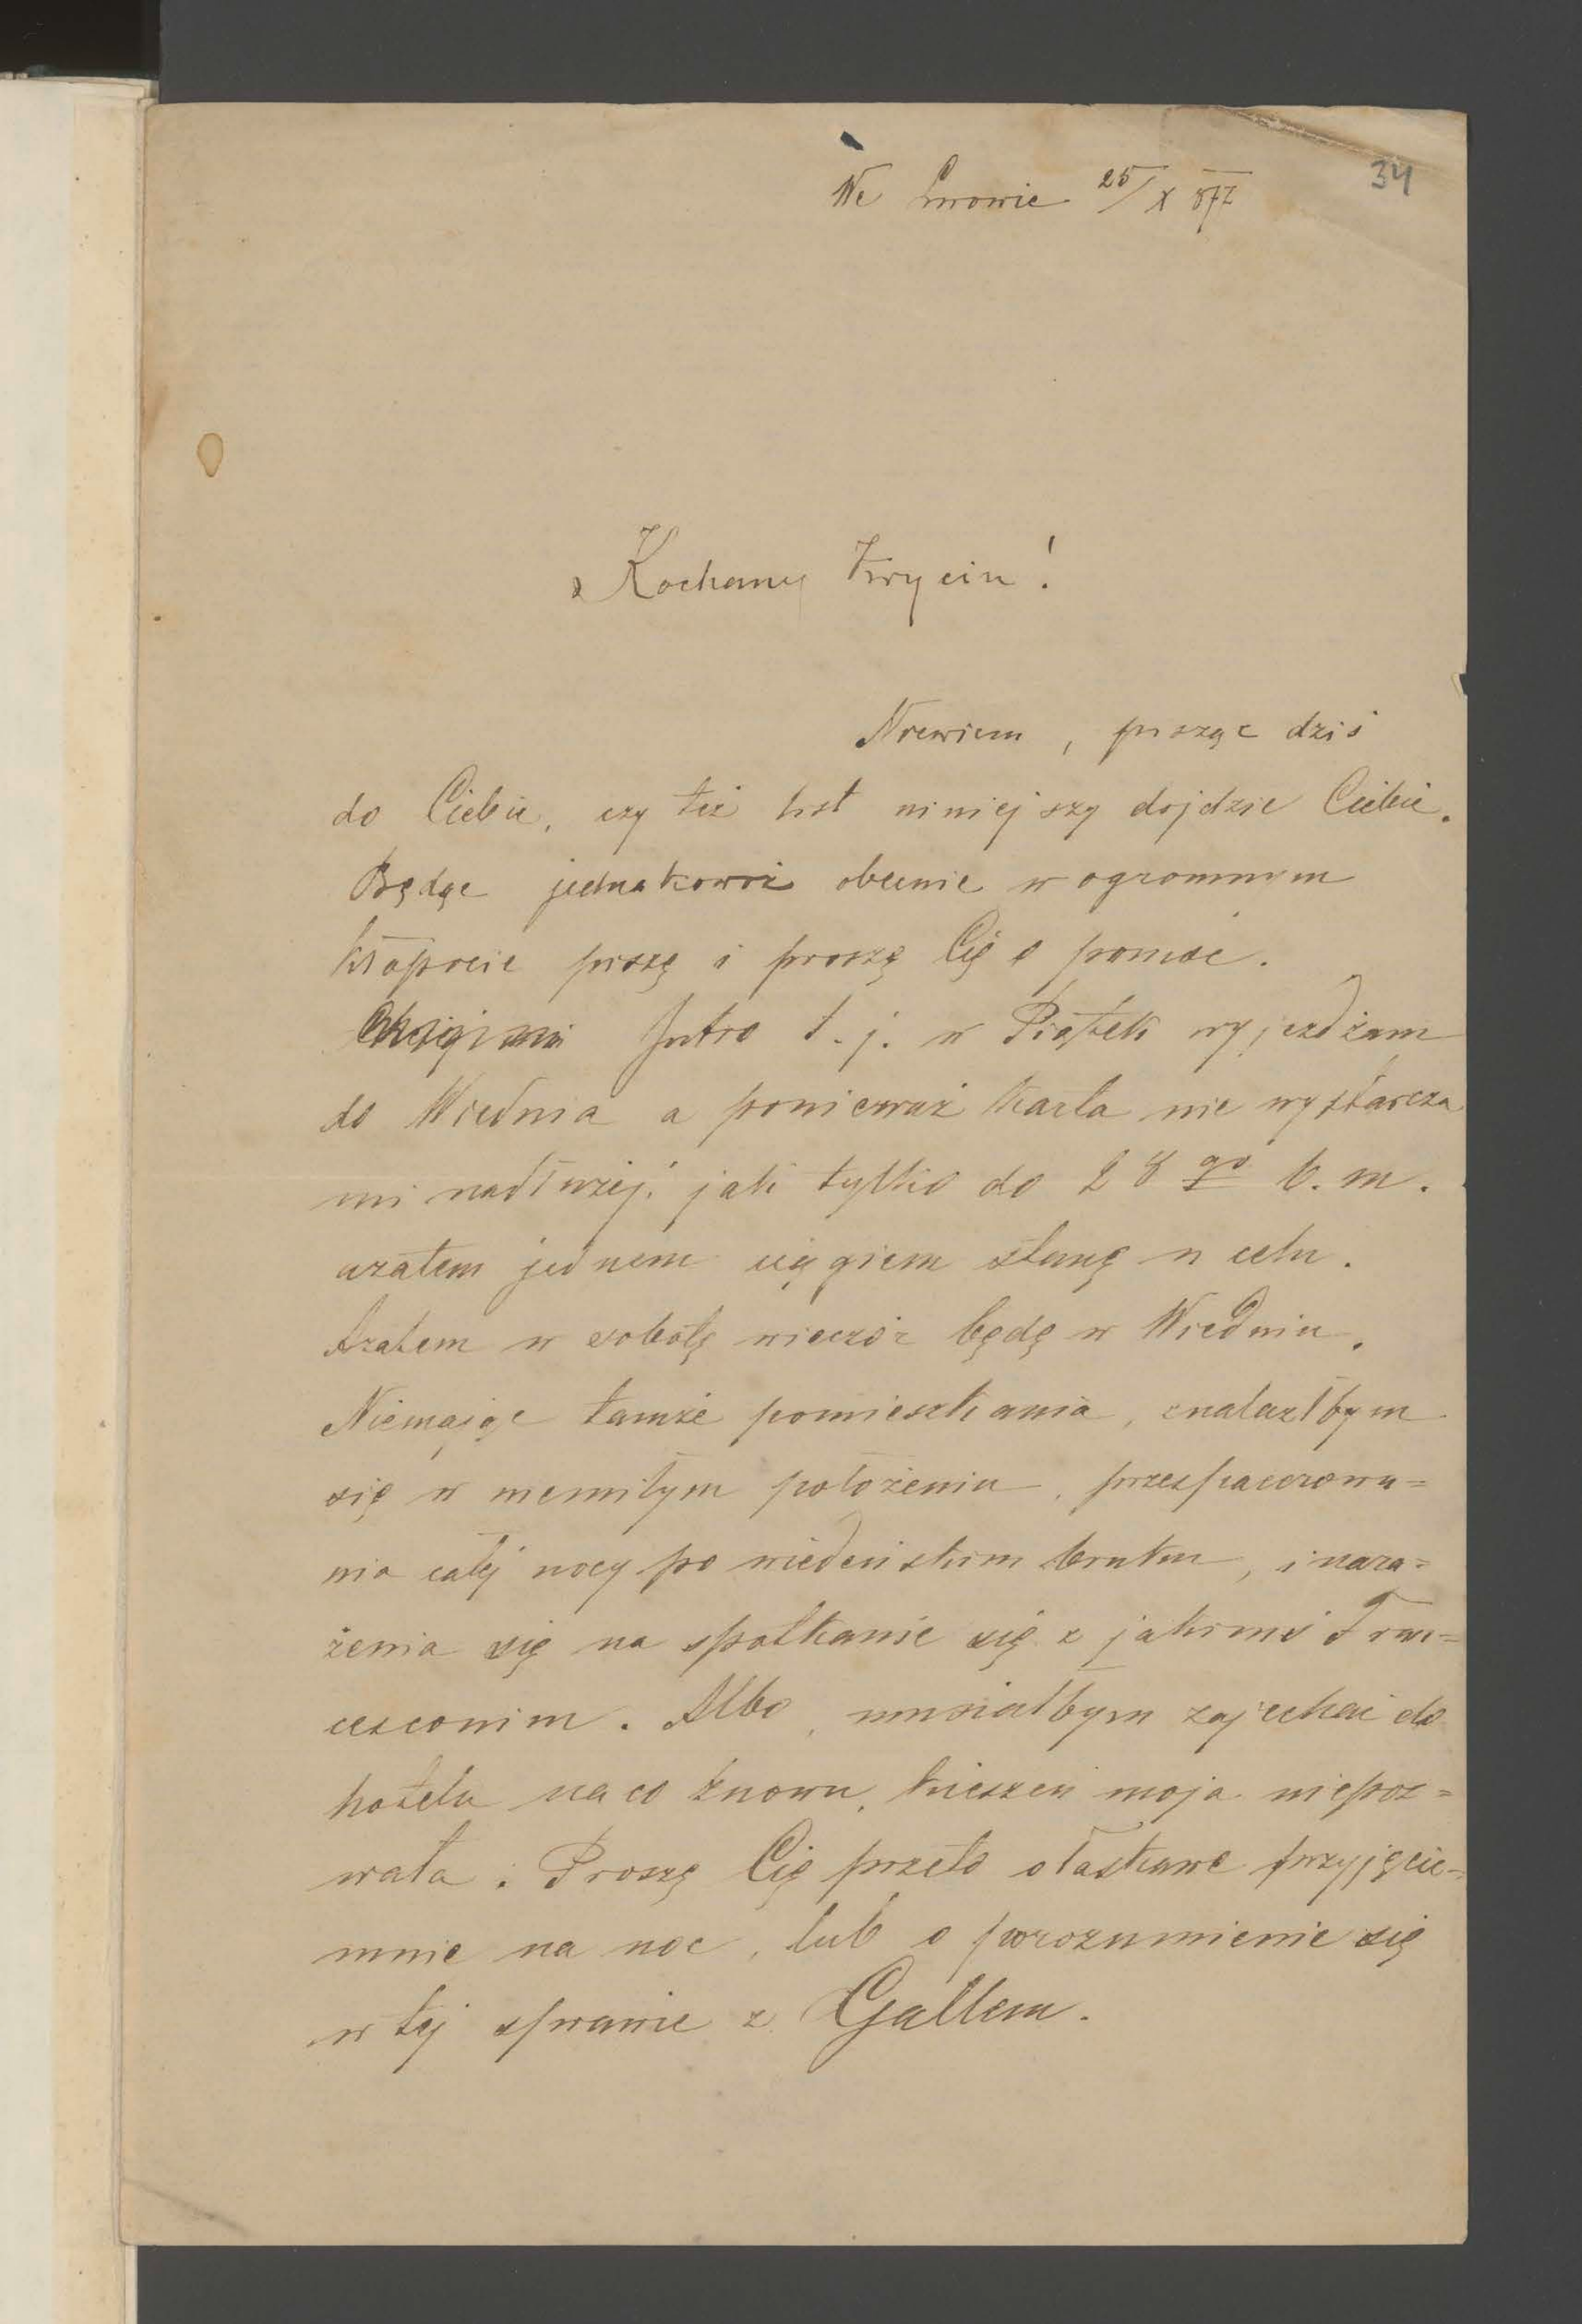 34
We Lwowie 25/X 877
Kochany Zryciu!
Niewiem, pisząc dziś
do Ciebie, czy też list niniejszy dojdzie Ciebie.
Będąc jednakowoż obecnie w ogromnym
kłopocie piszę i proszę Cię o pomoc.
Jutro t. j. w Piątek wyjeżdżam
do Wiednia a ponieważ karta nie wystarcza
mi nadłużej, jak tylko do 28go b. m.
azatem jednem ciągiem stanę u celu.
Azatem w sobotę wieczór będę w Wiedniu.
Niemając tamże pomieszkania, znalazłbym
się w niemiłym położeniu, przespacerowa=
nia całej nocy po wiedeńskim bruku, i nara=
żenia się na spotkanie się z jakimś Fran=
cesconim. Albo, musiałbym zajechać do
hotelu na co znowu, kieszeń moja niepoz=
wala. Proszę Cię przeto o łaskawe przyjęcie
mnie na noc, lub o porozumienie się
w tej sprawie z Gallem.